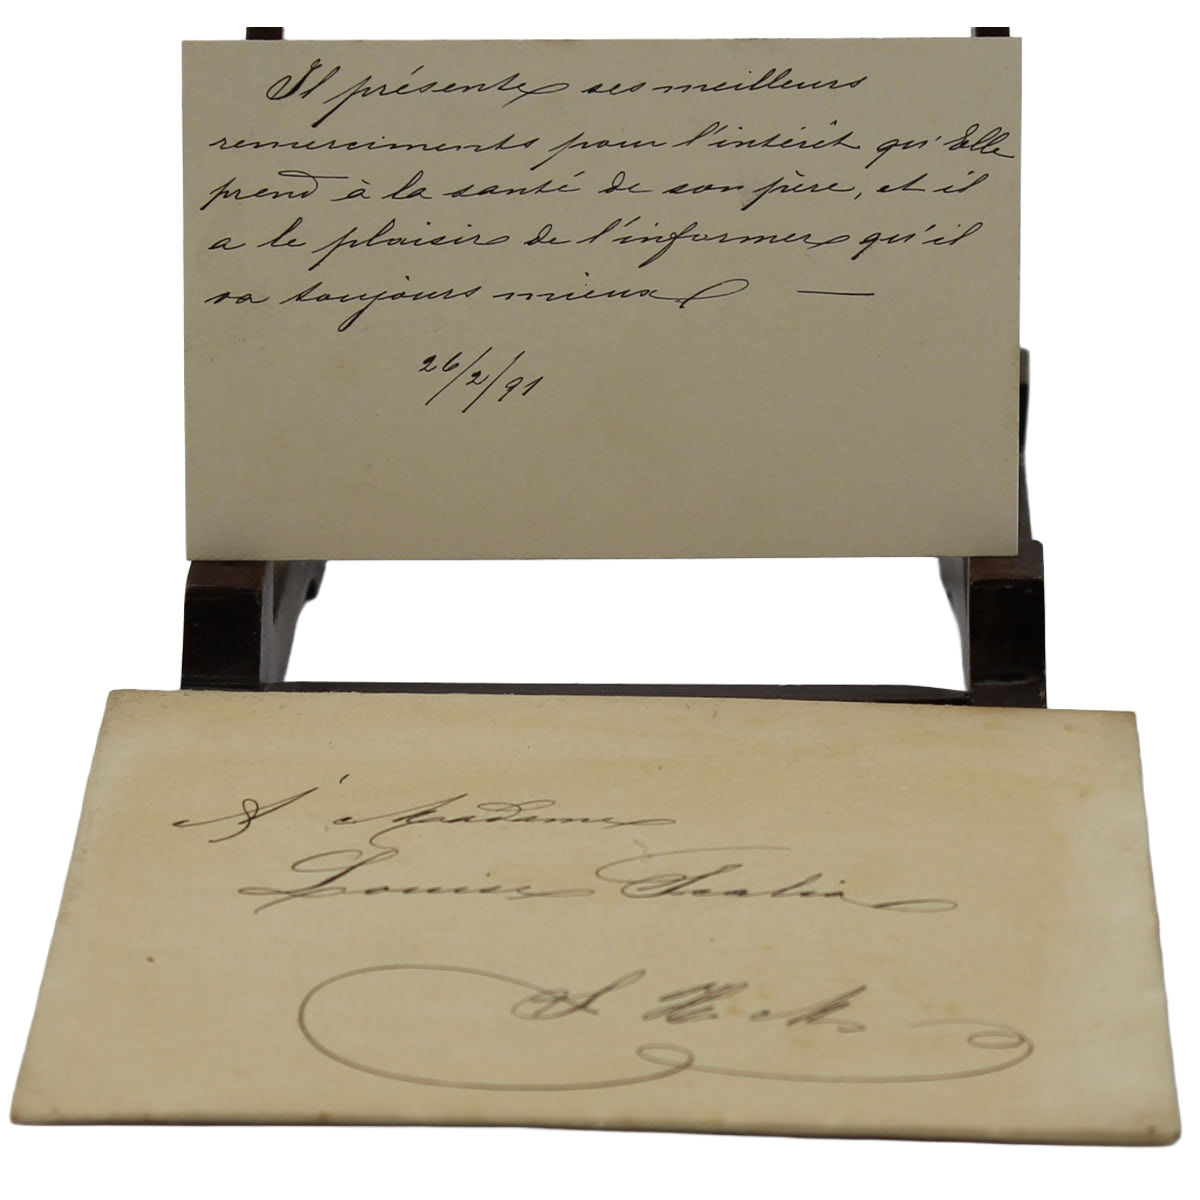 Il présente ses meilleurs
remerciments pour l'intérêt qu'Elle
prend à la santé de son père, et il
a le plaisir de l'informer qu'il
va toujours mieux —
26/2/91
A' Madame
Louise Scalia
S. M.